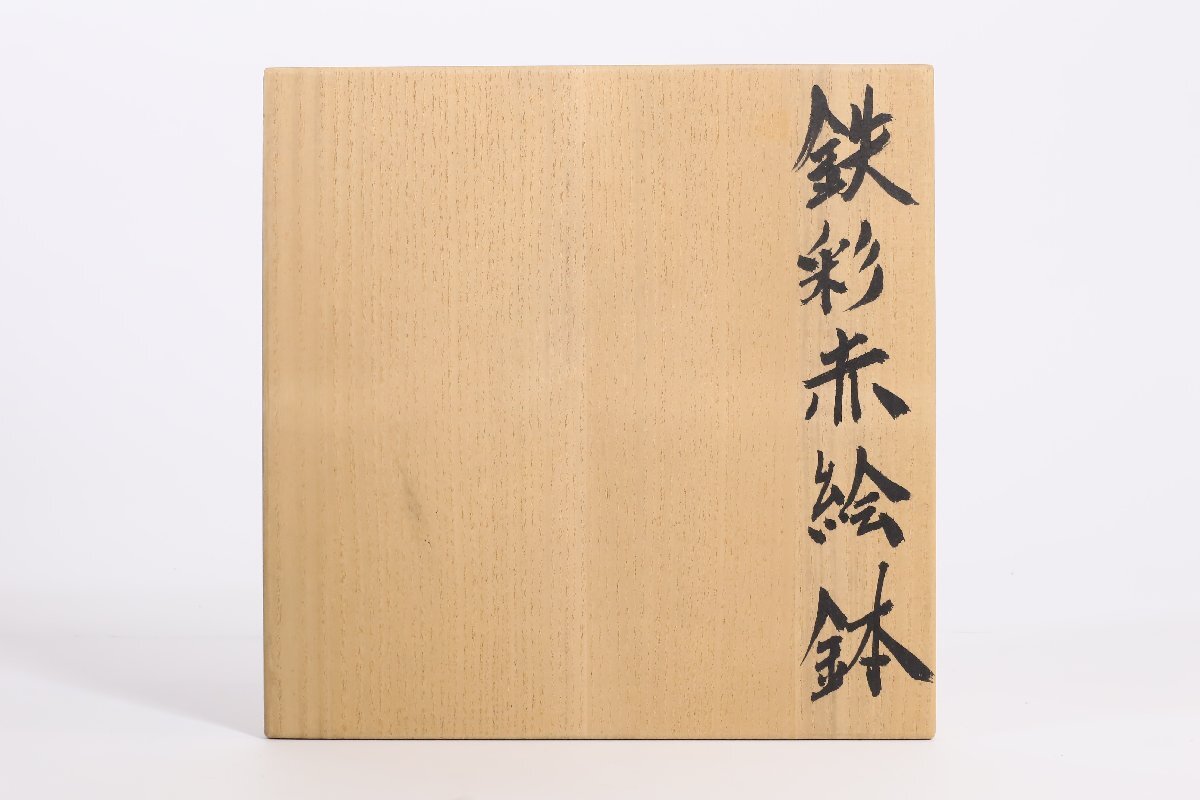 鉄彩赤絵鉢